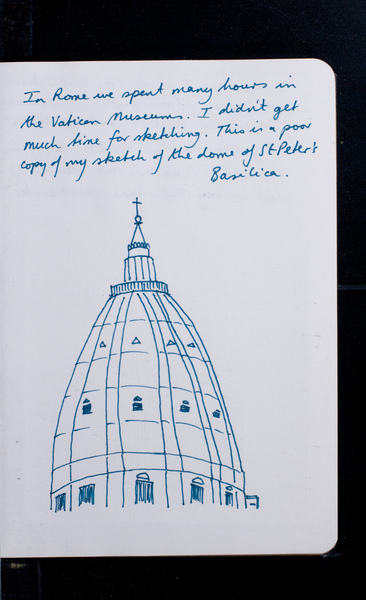 In Rome we spent many hours in
the Vatican Museums. I didn't get
much time for sketching. This is a poor
copy of my sketch of the dome of St Peter's
Basilica.